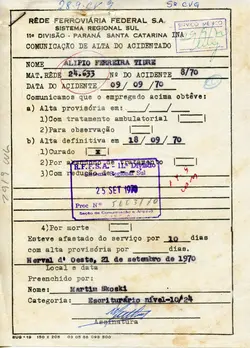 RÊDE FERROVIÁRIA FEDERAL S.A.
SISTEMA REGIONAL SUL
11ª DIVISÃO - PARANÁ SANTA CATARINA
COMUNICAÇÃO DE ALTA DO ACIDENTADO
NOME ALIPIO FERREIRA TIBRE
MAT. RÊDE 24.633 Nº DO ACIDENTE 8/70
DATA DO ACIDENTE 09/09/70
Comunicamos que o empregado acima obtêve:
a) Alta provisória em / /
1) Com tratamento ambulatorial ( )
2) Para observação ( )
b) Alta definitiva em 18/09/70
1) Curado ( X )
2) Por
3) Com redução
R.F.F.S.A. - 11ª Divisão
25 SET 1970
4) Por morte ( )
Esteve afastado do serviço por 10 dias
com alta provisória por dias.
Herval d' Oeste, 21 de setembro de 1970
Local e data
Preenchido por:
Nome: Martim Skoski
Categoria: Escriturário nível-10/24
Assinatura